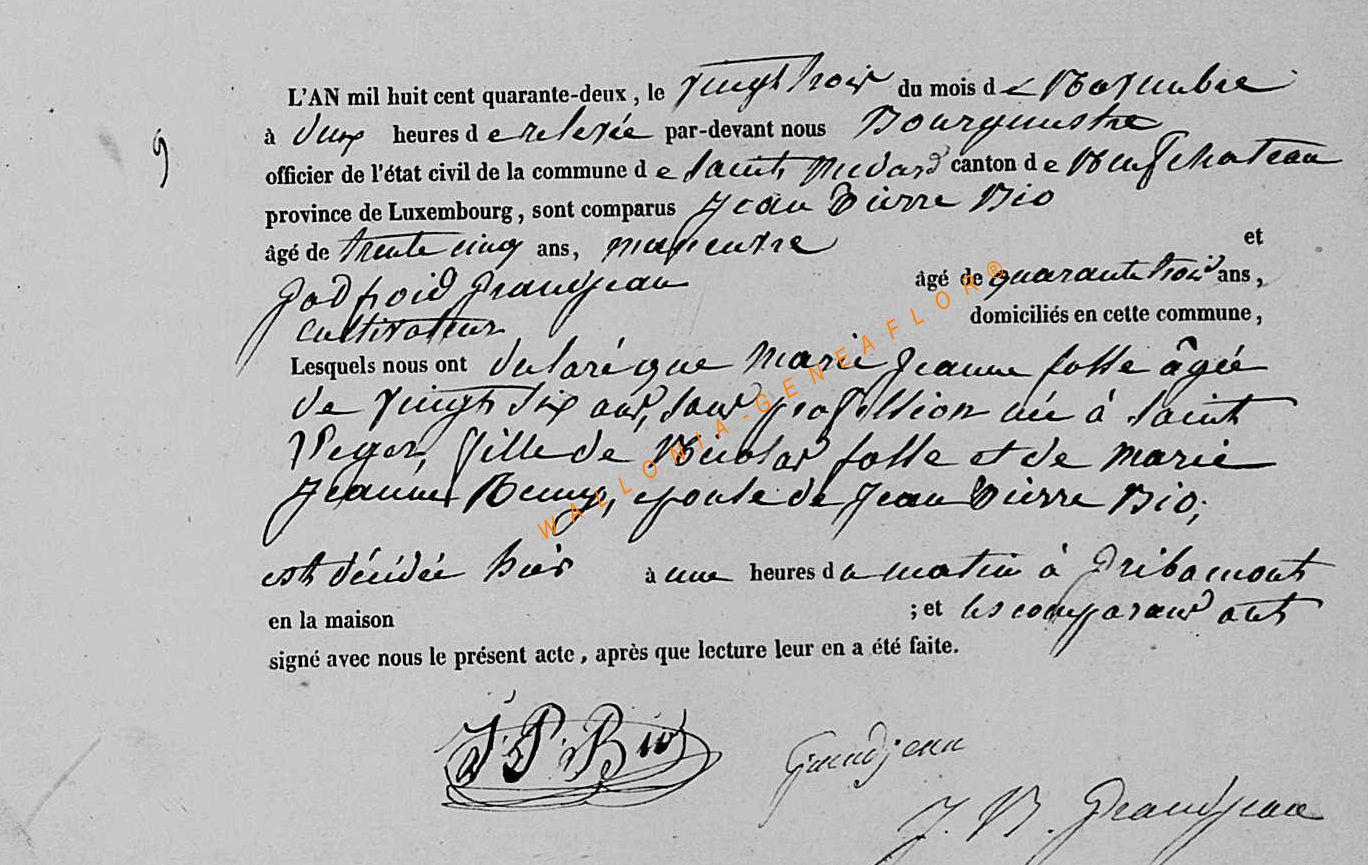 9
L'AN mil huit cent quarante-deux, le vingt trois du mois de Novembre
à deux heures de relevée par-devant nous Bourguestre
officier de l'état civil de la commune de Saint Medard canton de Neufchateau
province de Luxembourg, sont comparus Jean Pierre Bio
âgé de trente cinq ans, et
godfroid grandjean âgé de quarante trois ans,
cultivateur domiciliés en cette commune,
Lesquels nous ont declaré que Marie Jeanne folle âgée
de vingt six ans, sans profession née à Saint
Leger, fille de Nicolas folle et de Marie
Jeanne Remy, epouse de Jean Pierre Bio;
est décédée hier à une heures du matin à Gribomont
en la maison ; et les comparans ont
signé avec nous le présent acte, après que lecture leur en a été faite.
J. P. Bio Grandjean
J. B. Grandjean
WALLONIA-GENEAFLOR®